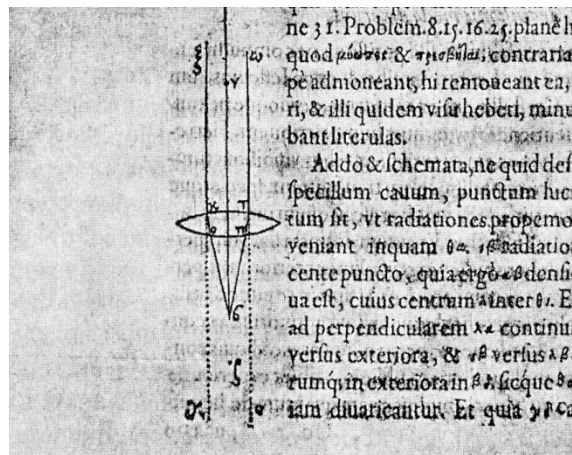 ne 31. Problem. 8. 15. 16. 25. planè h
quod μύωπες & πρεσβῦται, contraria
pe admoneant, hi remoueant ea,
ri, & illi quidem visu hebeti, minu
bant literulas.
Addo & schemata, ne quid des
specillum cauum, punctum luc
tum sit, vt radiationes propemo
veniant inquam θα, ιβ radiatio
cente puncto, quia ergo αβ densi
ua est, cuius centrum λ inter θι. E
ad perpendicularem κα continu
versus exteriora, & ιβ versus λβ
rumq́; in exteriora in βδ, sicque
iam diuaricantur. Et quia γβ ca
ξ
ω
υ
χ
τ
ο
π
ς
ζ